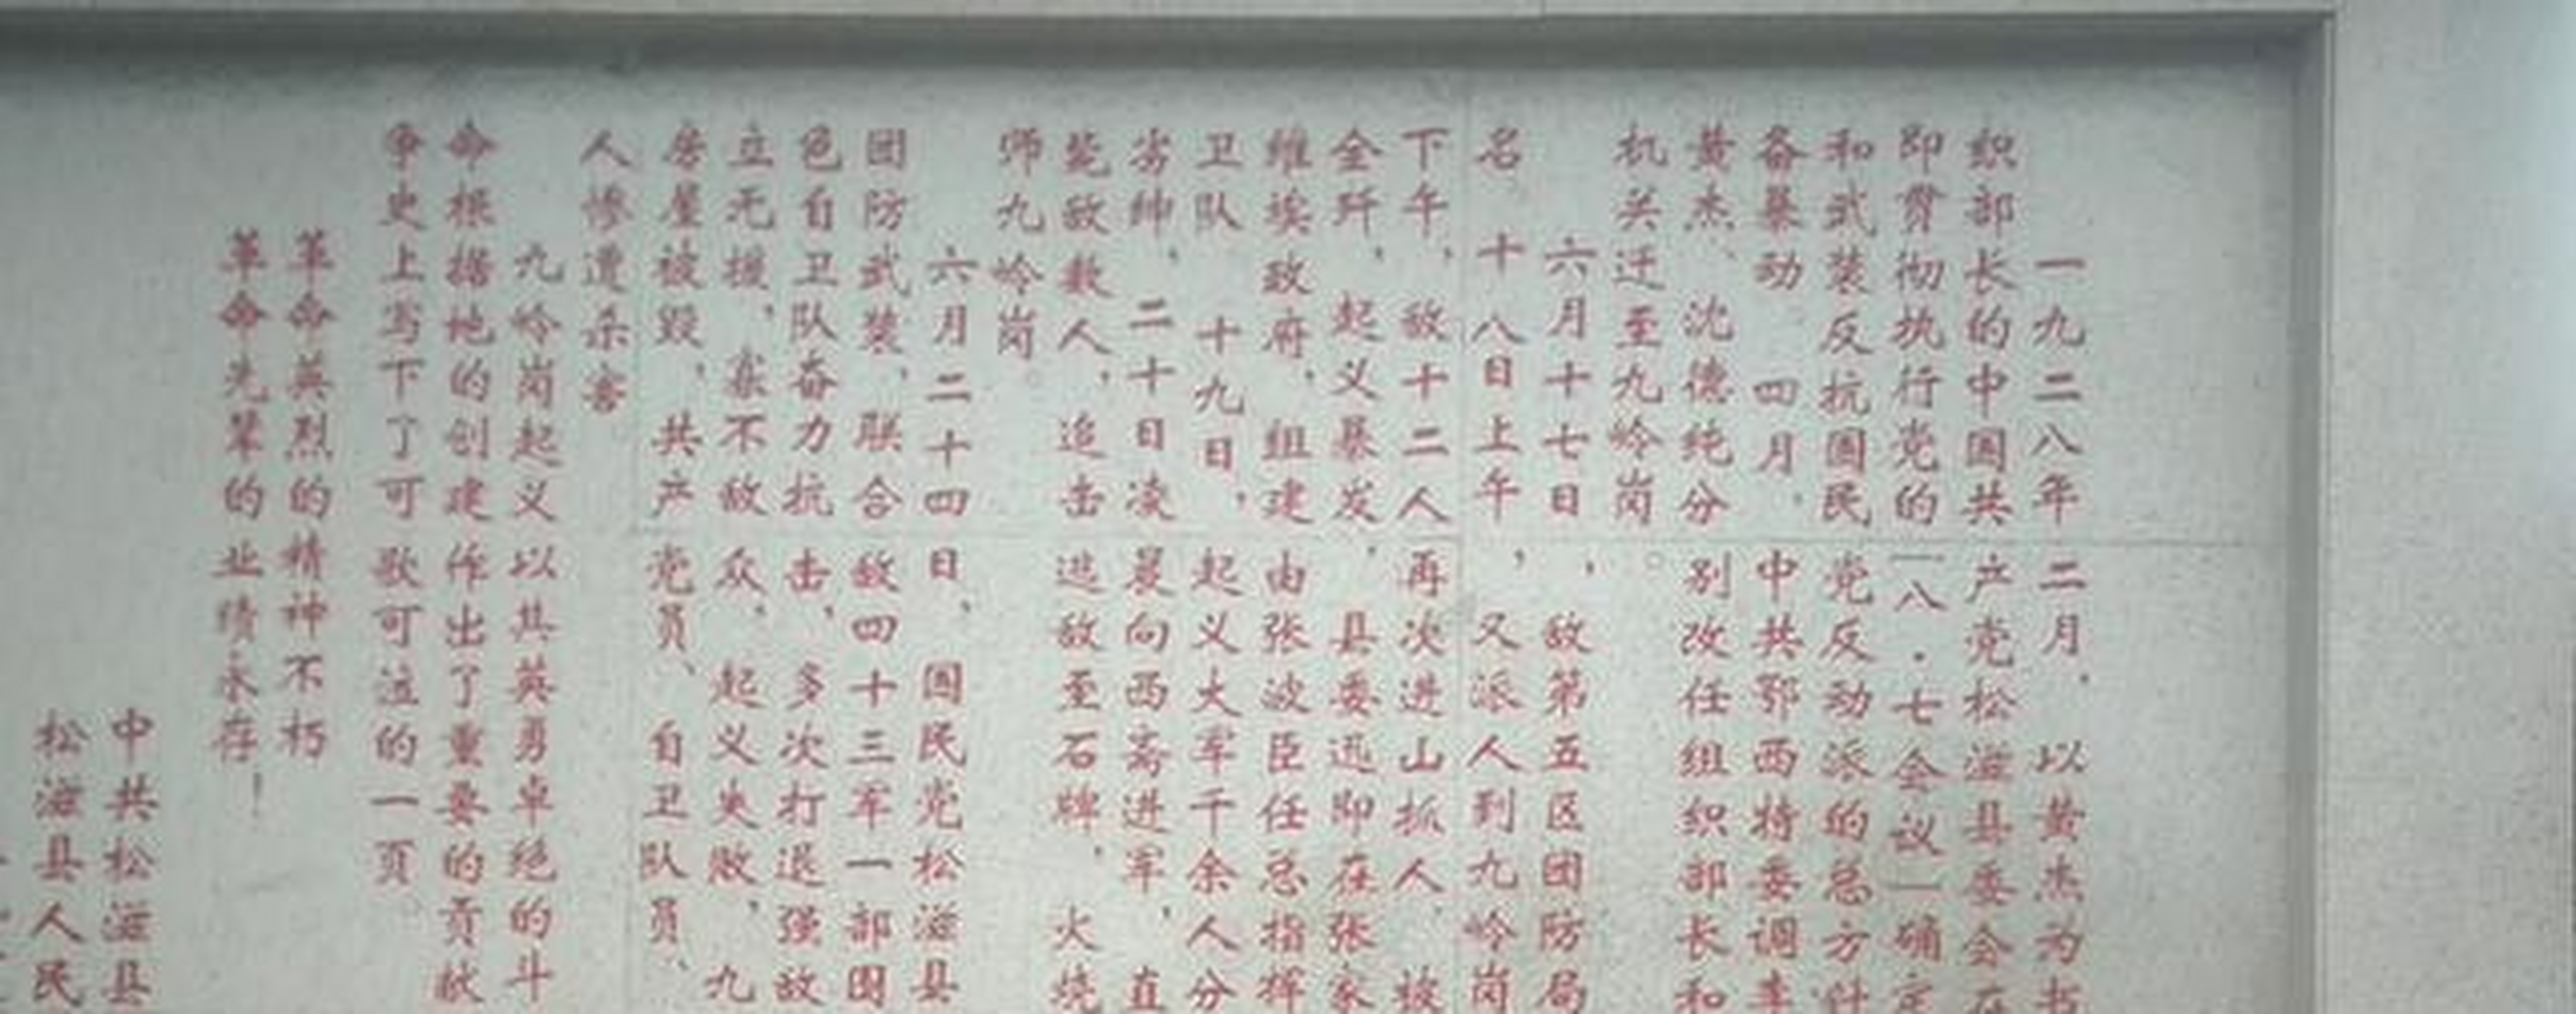 一九二八年二月，以黄杰为书
织部长的中国共产党松滋县委会在
即贯彻执行党的“八·七会议”确定
和武装反抗国民党反动派的总方针
备暴动。四月，中共鄂西特委调李
黄杰、沈德纯分别改任组织部长和
机关迁至九岭岗。
六月十七日，敌第五区团防局
名。十八日上午，又派人到九岭岗
下午，敌十二人再次进山抓人，被
全歼，起义暴发，县委迅即在张家
维埃政府，组建由张波臣任总指挥
卫队。十九日，起义大军千余人分
劣绅，二十日凌晨向西斋进军，直
毙敌数人，追击逃敌至石牌，火烧
师九岭岗。
六月二十四日，国民党松滋县
团防武装，联合敌四十三军一部围
色自卫队奋力抗击，多次打退强敌
立无援，寡不敌众，起义失败，九
房屋被毁，共产党员、自卫队员、
人惨遭杀害
九岭岗起义以其英勇卓绝的斗
命根据地的创建作出了重要的贡献
争史上写下了可歌可泣的一页。
革命英烈的精神不朽
革命先辈的业绩永存！
中共松滋县
松滋县人民